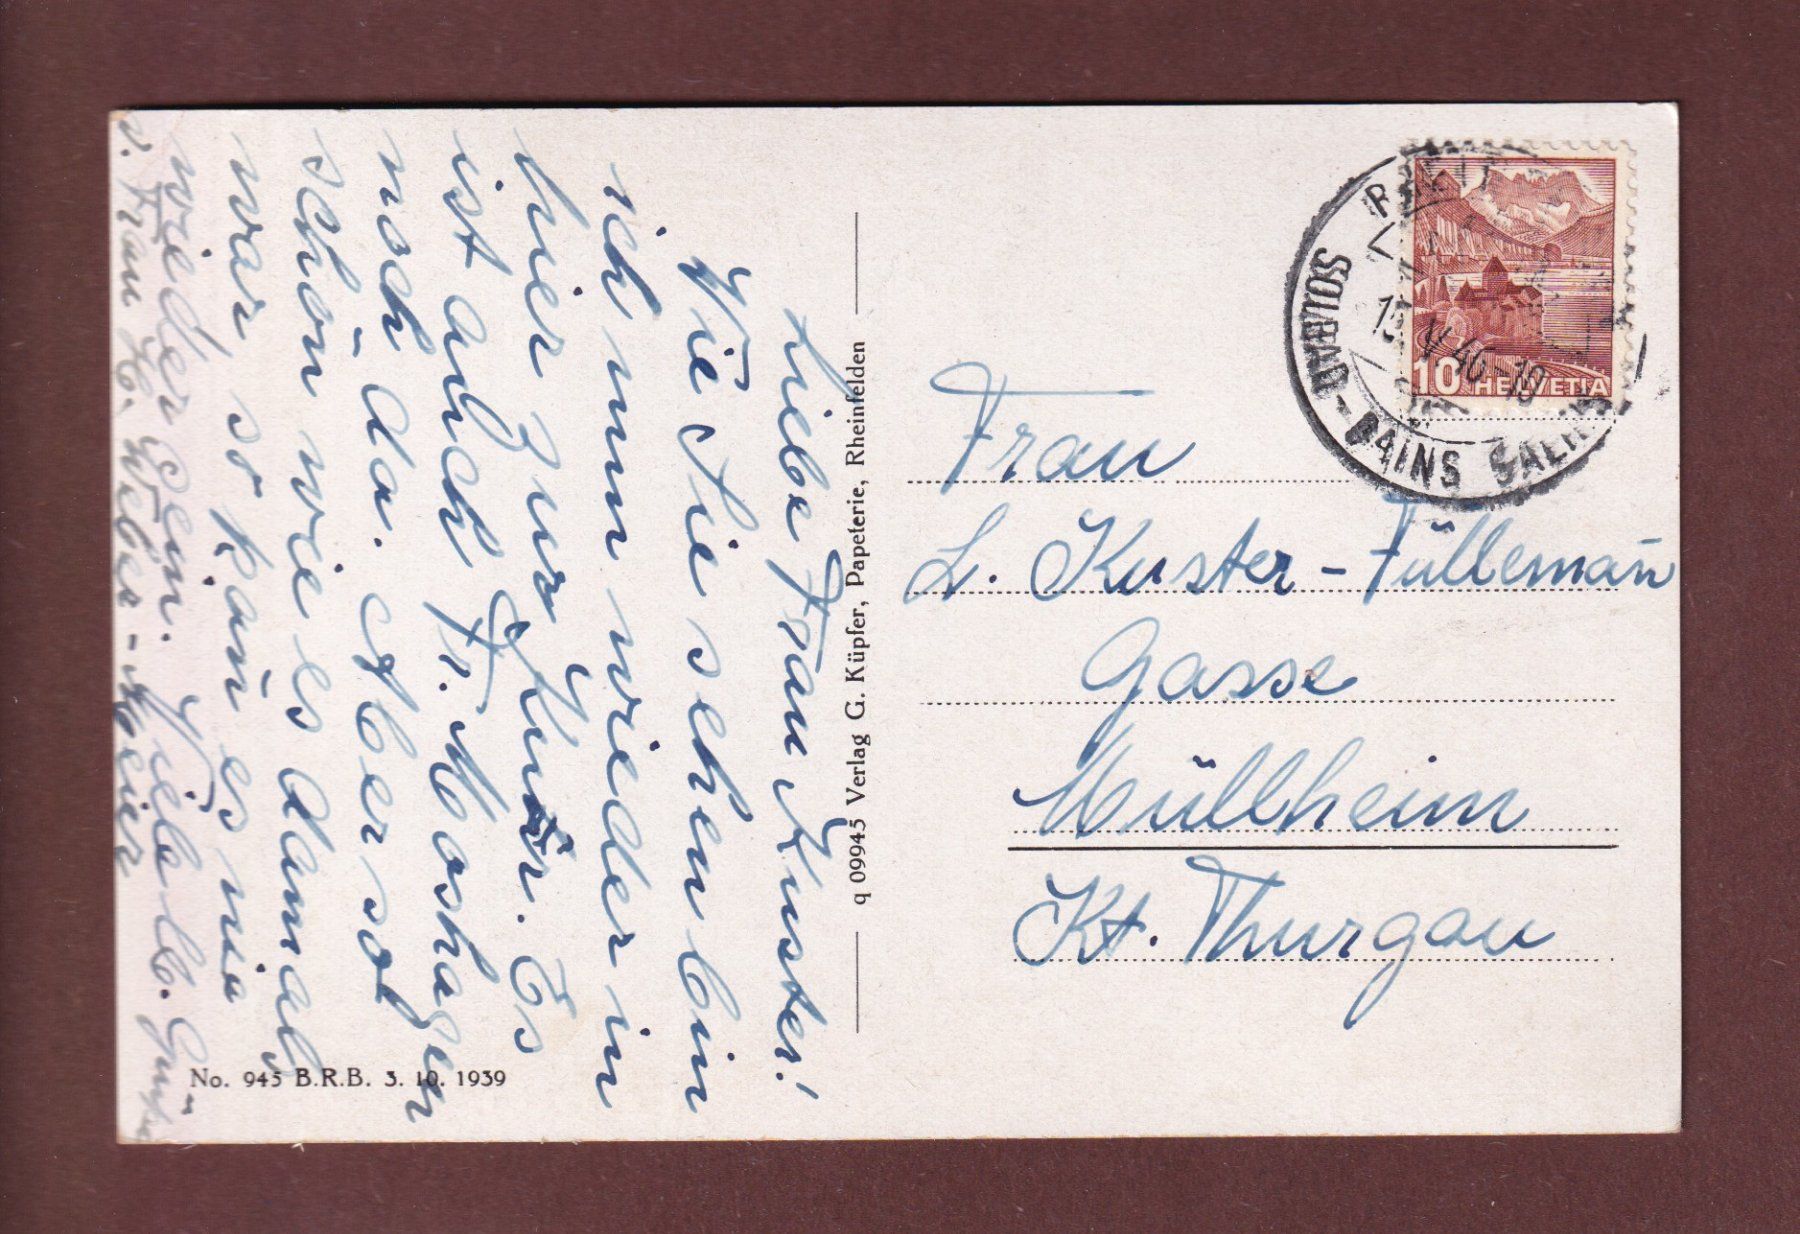 Liebe Frau Kuster!
Wie Sie sehen bin
ich nun wieder in
hier zur Kur. Es
ist auch Fr. Moshagen
noch da. Aber so
schön wie es damals
war, so kan̄ es nie
wieder sein. Viele b. Grüsse
v. Frau H. Weber-Meier
q 09945 Verlag G. Küpfer, Papeterie, Rheinfelden
No. 945 B.R.B. 3. 10. 1939
10 HELVETIA
V 46-19
SOLBAD-BAINS SALINS
Frau
L. Kuster-Fülleman̄
Gasse
Müllheim
Kt. Thurgau